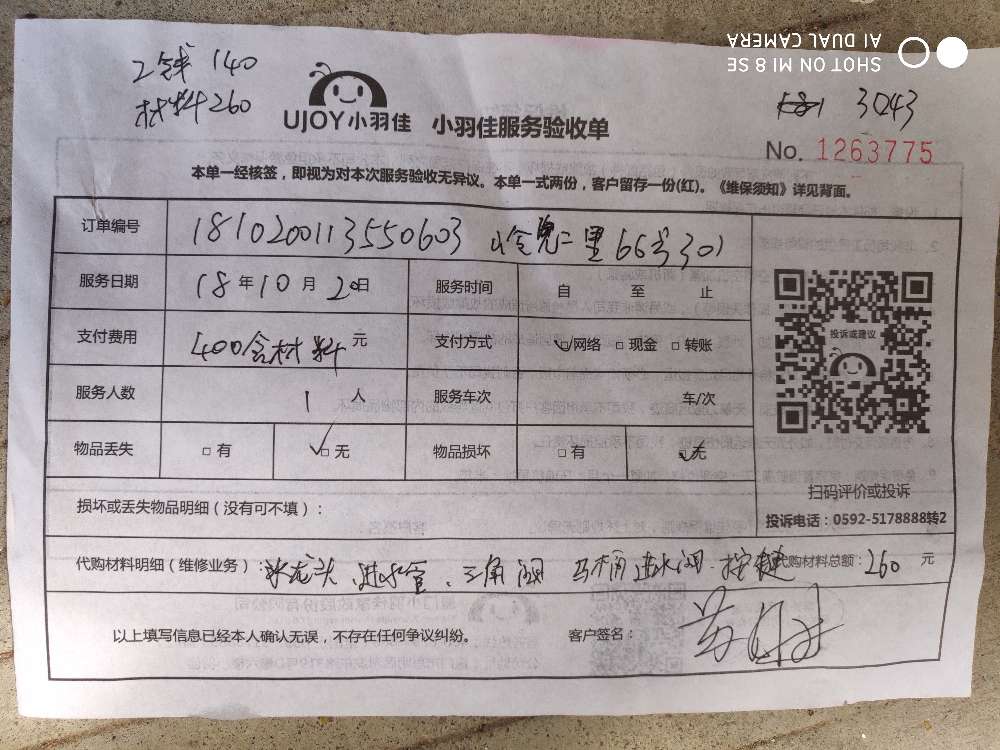 SHOT ON MI 8 SE
AI DUAL CAMERA
工钱 140
材料 260
3043
UJOY小羽佳 小羽佳服务验收单
No. 1263775
本单一经核签，即视为对本次服务验收无异议。本单一式两份，客户留存一份(红)。《维保须知》详见背面。
订单编号 1810200113550603 二里66号301
服务日期 18年10月20日 服务时间 自 至 止
支付费用 400含材料元 支付方式 ☑网络 □现金 □转账
投诉或建议
服务人数 1人 服务车次 车/次
物品丢失 □有 ☑无 物品损坏 □有 ☑无
扫码评价或投诉
损坏或丢失物品明细（没有可不填）：
投诉电话：0592-5178888转2
代购材料明细（维修业务）：水龙头、进水管、三角阀 马桶进水阀、按键 代购材料总额：260元
以上填写信息已经本人确认无误，不存在任何争议纠纷。 客户签名：